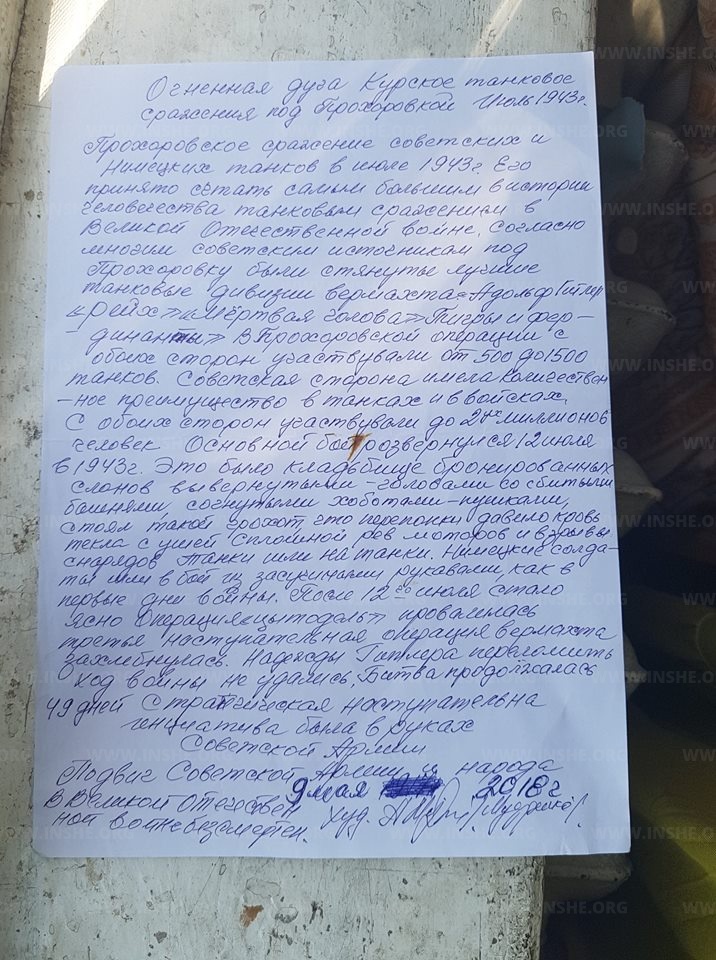 Огненная дуга Курское танковое
сражения под Прохоровкой Июль 1943г.
Прохоровское сражение советских и
Немецких танков в июле 1943г. Его
принято сътать самым большим в истории
человечества танковым сражением в
Великой Отечественной войне. Согласно
многим советским источникам под
Прохоровку были стянуты лучшие
танковые дивизии вермахта «Адольф Гитлер
«Рейх» «Мёртвая голова» Тигры и фер-
динанты» В Прохоровской операции с
обоих сторон участвували от 500 до 1500
танков. Советская сторона имела количествен
-ное преимущество в танках и в войсках.
С обоих сторон участвували до 2ух миллионов
человек Основной бой розвернулся 12 июля
в 1943г. Это было кладьбище бронированных
слонов вывернутыми-головами со сбитыми
башнями согнутыми хоботами-пушками,
стоял такой грохот, что перепонки давило кровь
текла с ушей Сплошной рев моторов и взрывы
снарядов Танки шли на танки. Немецкие солда-
ты шли в бой из засученными рукавами, как в
первые дни войны. После 12го июля стало
ясно операция «цытодаль» провалилась
третья наступательная операция вермахта
захлебнулась. Надежды Гитлера переломить
ход войны не удались, Битва продолжалась
49 дней Стратегическая наступательна
инициатива была в руках
Советской Армии
Подвиг Советской Армии и народа
В Великой Отечествен 9 мая 2018г
ной войне безсмертен. Худ.
WWW.INSHE.ORG